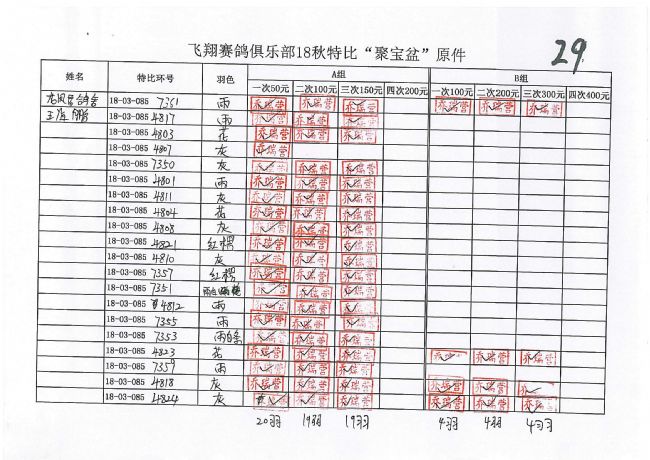 飞翔赛鸽俱乐部18秋特比“聚宝盆”原件
29
姓名 特比环号 羽色 A组 B组
一次50元 二次100元 三次150元 四次200元 一次100元 二次200元 三次300元 四次400元
18-03-085 7361 雨 乔瑞营 乔瑞营 乔瑞营 乔瑞营 乔瑞营 乔瑞营
18-03-085 4817 雨 乔瑞营 乔瑞营 乔瑞营
18-03-085 4803 花 乔瑞营 乔瑞营 乔瑞营
18-03-085 4807 灰 乔瑞营
18-03-085 7350 灰 乔瑞营 乔瑞营 乔瑞营
18-03-085 4801 雨 乔瑞营 乔瑞营 乔瑞营
18-03-085 4811 灰 乔瑞营 乔瑞营 乔瑞营
18-03-085 4804 花 乔瑞营 乔瑞营 乔瑞营
18-03-085 4808 灰 乔瑞营 乔瑞营 乔瑞营
18-03-085 4821 红楞 乔瑞营 乔瑞营 乔瑞营
18-03-085 4810 灰 乔瑞营 乔瑞营 乔瑞营
18-03-085 7357 红楞 乔瑞营 乔瑞营 乔瑞营
18-03-085 7351 乔瑞营 乔瑞营 乔瑞营
18-03-085 4812 雨 乔瑞营 乔瑞营 乔瑞营
18-03-085 7355 雨 乔瑞营 乔瑞营 乔瑞营
18-03-085 7353 雨白条 乔瑞营 乔瑞营 乔瑞营
18-03-085 4823 花 乔瑞营 乔瑞营 乔瑞营 乔瑞营 乔瑞营 乔瑞营
18-03-085 7359 雨 乔瑞营 乔瑞营 乔瑞营
18-03-085 4818 灰 乔瑞营 乔瑞营 乔瑞营 乔瑞营 乔瑞营 乔瑞营
18-03-085 4824 灰 乔瑞营 乔瑞营 乔瑞营 乔瑞营 乔瑞营 乔瑞营
20羽 19羽 19羽 4羽 4羽 4羽